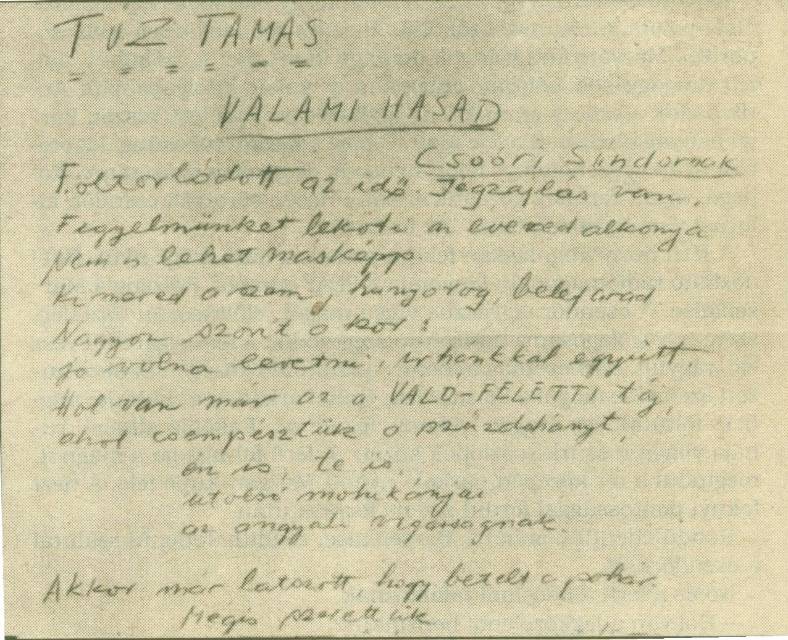 TŰZ TAMÁS
VALAMI HASAD
Csoóri Sándornak
Föltorlódott az idő. Jégzajlás van.
Figyelmünket leköti az évezred alkonya
Nem is lehet másképp.
Kimered a szem, hunyorog, belefárad
Nagyon szorít a kor:
jó volna levetni, irhánkkal együtt
Hol van már az a VALÓ-FELETTI táj,
ahol csempésztük a szűzdohányt,
én is, te is,
utolsó mohikánjai
az angyali vigasságnak
Akkor már látszott, hogy betelt a pohár
Mégis szerettük